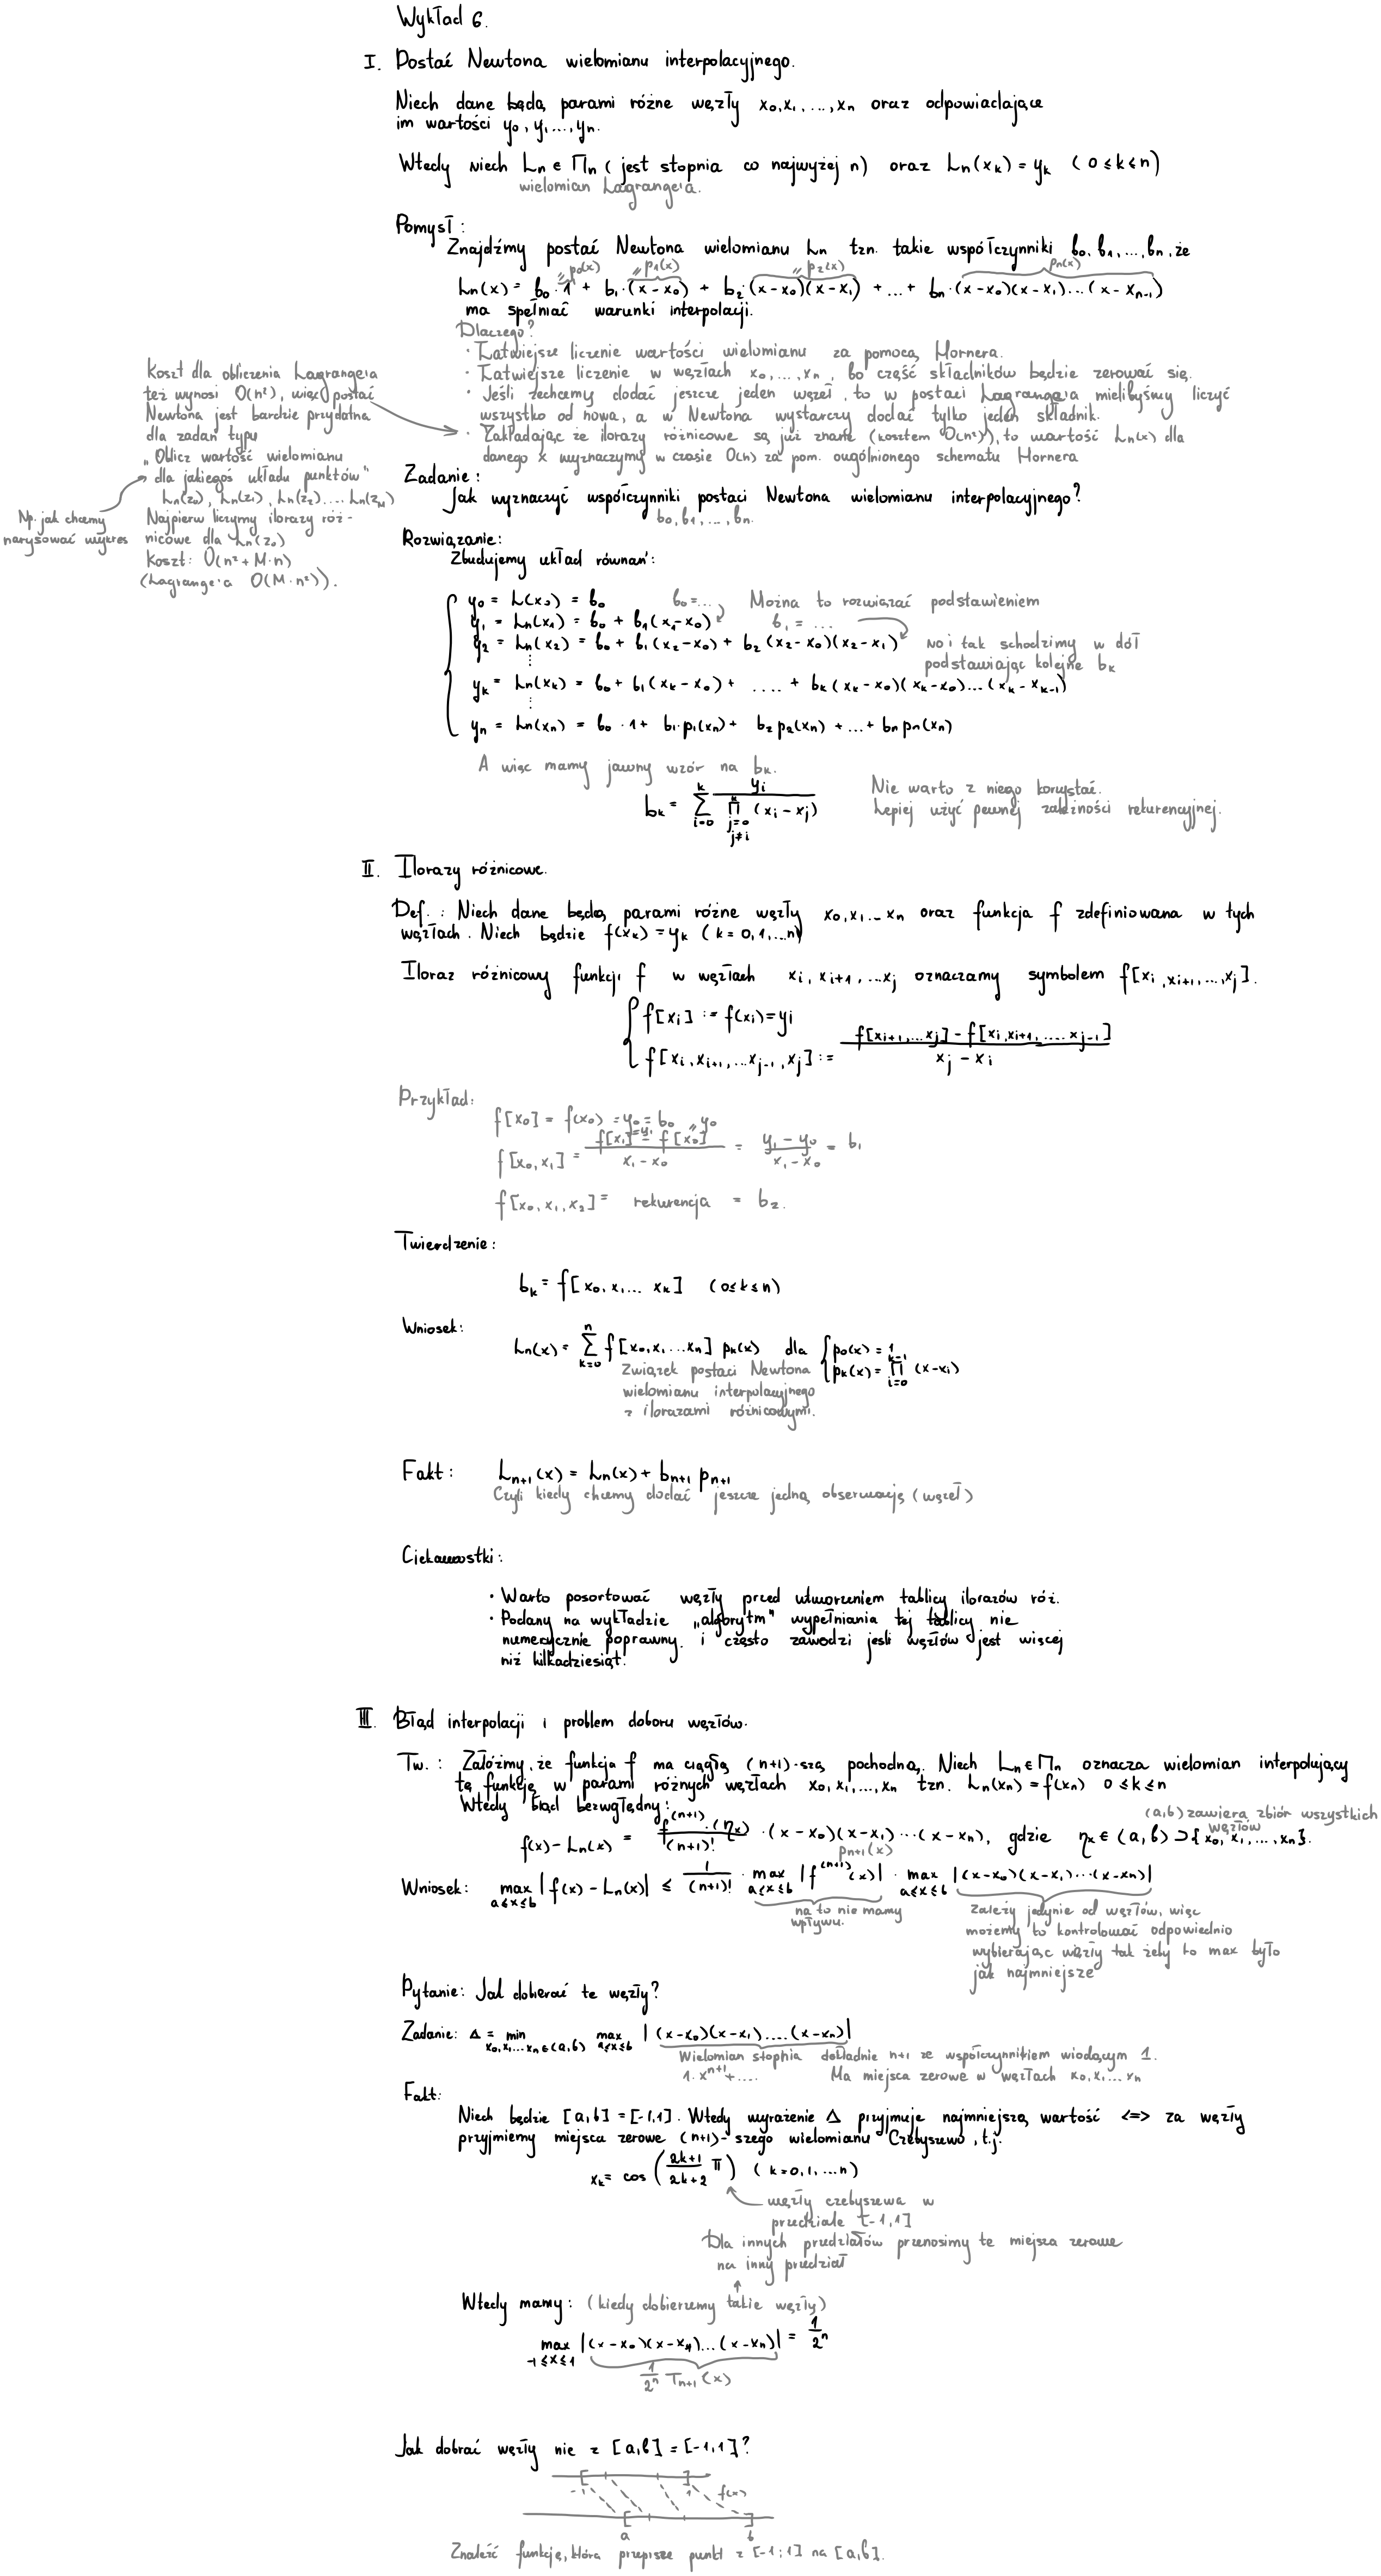 Wykład 6.
I. Postać Newtona wielomianu interpolacyjnego.
Niech dane będą parami różne węzły x₀,x₁,...,xₙ oraz odpowiadające
im wartości y₀,y₁...,yₙ.
Wtedy niech Lₙ ∈ Πₙ ( jest stopnia co najwyżej n) oraz Lₙ(xₖ) = yₖ ( 0 ≤ k ≤ n)
wielomian Lagrange'a.
Pomysł :
Znajdźmy postać Newtona wielomianu Lₙ tzn. takie współczynniki b₀, b₁,...,bₙ, że
" p₀(x) " p₁(x) " p₂(x) pₙ(x)
Lₙ(x) = b₀ · 1 + b₁ · (x - x₀) + b₂ · (x - x₀)(x - x₁) + ... + bₙ · (x - x₀)(x - x₁)...(x - xₙ₋₁)
ma spełniać warunki interpolacji.
Dlaczego?
· Łatwiejsze liczenie wartości wielomianu za pomocą Hornera.
· Łatwiejsze liczenie w węzłach x₀,...,xₙ, bo część składników będzie zerować się.
· Jeśli zechcemy dodać jeszcze jeden węzeł, to w postaci Lagrange'a mielibyśmy liczyć
wszystko od nowa, a w Newtona wystarczy dodać tylko jeden składnik.
· Zakładając że ilorazy różnicowe są już znane (kosztem O(n²)), to wartość Lₙ(x) dla
danego x wyznaczymy w czasie O(n) za pom. uogólnionego schematu Hornera
Koszt dla obliczenia Lagrange'a
też wynosi O(n²), więc postać
Newtona jest bardzie przydatna
dla zadań typu
„Oblicz wartość wielomianu
dla jakiegoś układu punktów"
Lₙ(z₀), Lₙ(z₁), Lₙ(z₂)....Lₙ(z_M)
Najpierw liczymy ilorazy róż-
nicowe dla Lₙ(z₀)
Koszt: O(n² + M·n)
(Lagrange'a O(M·n²)).
Np. jak chcemy
narysować wykres
Zadanie :
Jak wyznaczyć współczynniki postaci Newtona wielomianu interpolacyjnego?
b₀,b₁,...,bₙ.
Rozwiązanie:
Zbudujemy układ równań:
y₀ = L(x₀) = b₀ b₀ = ... Można to rozwiązać podstawieniem
y₁ = Lₙ(x₁) = b₀ + b₁(x₁-x₀) b₁ = ...
y₂ = Lₙ(x₂) = b₀ + b₁(x₂-x₀) + b₂(x₂-x₀)(x₂-x₁) no i tak schodzimy w dół
podstawiając kolejne bₖ
⋮
yₖ = Lₙ(xₖ) = b₀ + b₁(xₖ-x₀) + .... + bₖ(xₖ-x₀)(xₖ-x₀)...(xₖ-xₖ₋₁)
⋮
yₙ = Lₙ(xₙ) = b₀ · 1 + b₁·p₁(xₙ) + b₂p₂(xₙ) + ... + bₙpₙ(xₙ)
A więc mamy jawny wzór na bₖ.
bₖ = Σ_{i=0}^{k} yᵢ / ∏_{j=0, j≠i}^{k} (xᵢ - xⱼ)
Nie warto z niego korzystać.
Lepiej użyć pewnej zależności rekurencyjnej.
II. Ilorazy różnicowe.
Def. : Niech dane będą parami różne węzły x₀,x₁...xₙ oraz funkcja f zdefiniowana w tych
węzłach. Niech będzie f(xₖ) = yₖ ( k = 0,1,...n)
Iloraz różnicowy funkcji f w węzłach xᵢ, xᵢ₊₁, ...xⱼ oznaczamy symbolem f[xᵢ,xᵢ₊₁,...,xⱼ].
f[xᵢ] := f(xᵢ) = yᵢ
f[xᵢ,xᵢ₊₁,...xⱼ₋₁,xⱼ] := (f[xᵢ₊₁,...xⱼ] - f[xᵢ,xᵢ₊₁,....xⱼ₋₁]) / (xⱼ - xᵢ)
Przykład:
f[x₀] = f(x₀) = y₀ = b₀
f[x₀,x₁] = (f[x₁] - f[x₀]) / (x₁ - x₀) = (y₁ - y₀) / (x₁ - x₀) = b₁
=y₁ "y₀
f[x₀,x₁,x₂] = rekurencja = b₂.
Twierdzenie :
bₖ = f[x₀,x₁... xₖ] (0≤k≤n)
Wniosek:
Lₙ(x) = Σ_{k=0}^{n} f[x₀,x₁,...xₙ] pₖ(x) dla { p₀(x) = 1
pₖ(x) = ∏_{i=0}^{k-1} (x-xᵢ)
Związek postaci Newtona
wielomianu interpolacyjnego
z ilorazami różnicowymi.
Fakt : Lₙ₊₁(x) = Lₙ(x) + bₙ₊₁ pₙ₊₁
Czyli kiedy chcemy dodać jeszcze jedną obserwację (węzeł)
Ciekawostki :
· Warto posortować węzły przed utworzeniem tablicy ilorazów róż.
· Podany na wykładzie „algorytm" wypełniania tej tablicy nie
numerycznie poprawny. i często zawodzi jeśli węzłów jest więcej
niż kilkadziesiąt.
III. Błąd interpolacji i problem doboru węzłów.
Tw. : Załóżmy, że funkcja f ma ciągłą (n+1)-szą pochodną. Niech Lₙ ∈ Πₙ oznacza wielomian interpolujący
tą funkcję w parami różnych węzłach x₀,x₁,...,xₙ tzn. Lₙ(xₙ) = f(xₙ) 0 ≤ k ≤ n
Wtedy błąd bezwględny:
(a,b) zawiera zbiór wszystkich
węzłów
f(x) - Lₙ(x) = f⁽ⁿ⁺¹⁾(ηₓ) / (n+1)! · (x - x₀)(x - x₁)···(x - xₙ), gdzie ηₓ ∈ (a,b) ⊃ {x₀,x₁,...,xₙ}.
pₙ₊₁(x)
Wniosek: max_{a≤x≤b} |f(x) - Lₙ(x)| ≤ 1/(n+1)! · max_{a≤x≤b} |f⁽ⁿ⁺¹⁾(x)| · max_{a≤x≤b} |(x-x₀)(x-x₁)···(x-xₙ)|
na to nie mamy
wpływu.
Zależy jedynie od węzłów, więc
możemy to kontrolować odpowiednio
wybierając węzły tak żeby to max było
jak najmniejsze
Pytanie: Jak dobierać te węzły?
Zadanie: Δ = min_{x₀,x₁...xₙ∈(a,b)} max_{a≤x≤b} |(x-x₀)(x-x₁)....(x-xₙ)|
Wielomian stopnia dokładnie n+1 ze współczynnikiem wiodącym 1.
1·xⁿ⁺¹+.... Ma miejsca zerowe w węzłach x₀,x₁...xₙ
Fakt:
Niech będzie [a,b] = [-1,1]. Wtedy wyrażenie Δ przyjmuje najmniejszą wartość <=> za węzły
przyjmiemy miejsca zerowe (n+1)-szego wielomianu Czebyszewa, t.j.
xₖ = cos( (2k+1)/(2k+2) π ) ( k=0,1,...n)
węzły czebyszewa w
przedziale [-1,1]
Dla innych przedziałów przenosimy te miejsca zerowe
na inny przedział
Wtedy mamy: (kiedy dobierzemy takie węzły)
max_{-1≤x≤1} |(x-x₀)(x-x₁)...(x-xₙ)| = 1/2ⁿ
1/2ⁿ Tₙ₊₁(x)
Jak dobrać węzły nie z [a,b] = [-1,1]?
-1 1 f(x)
a b
Znaleźć funkcję, która przepisze punkt z [-1;1] na [a,b].